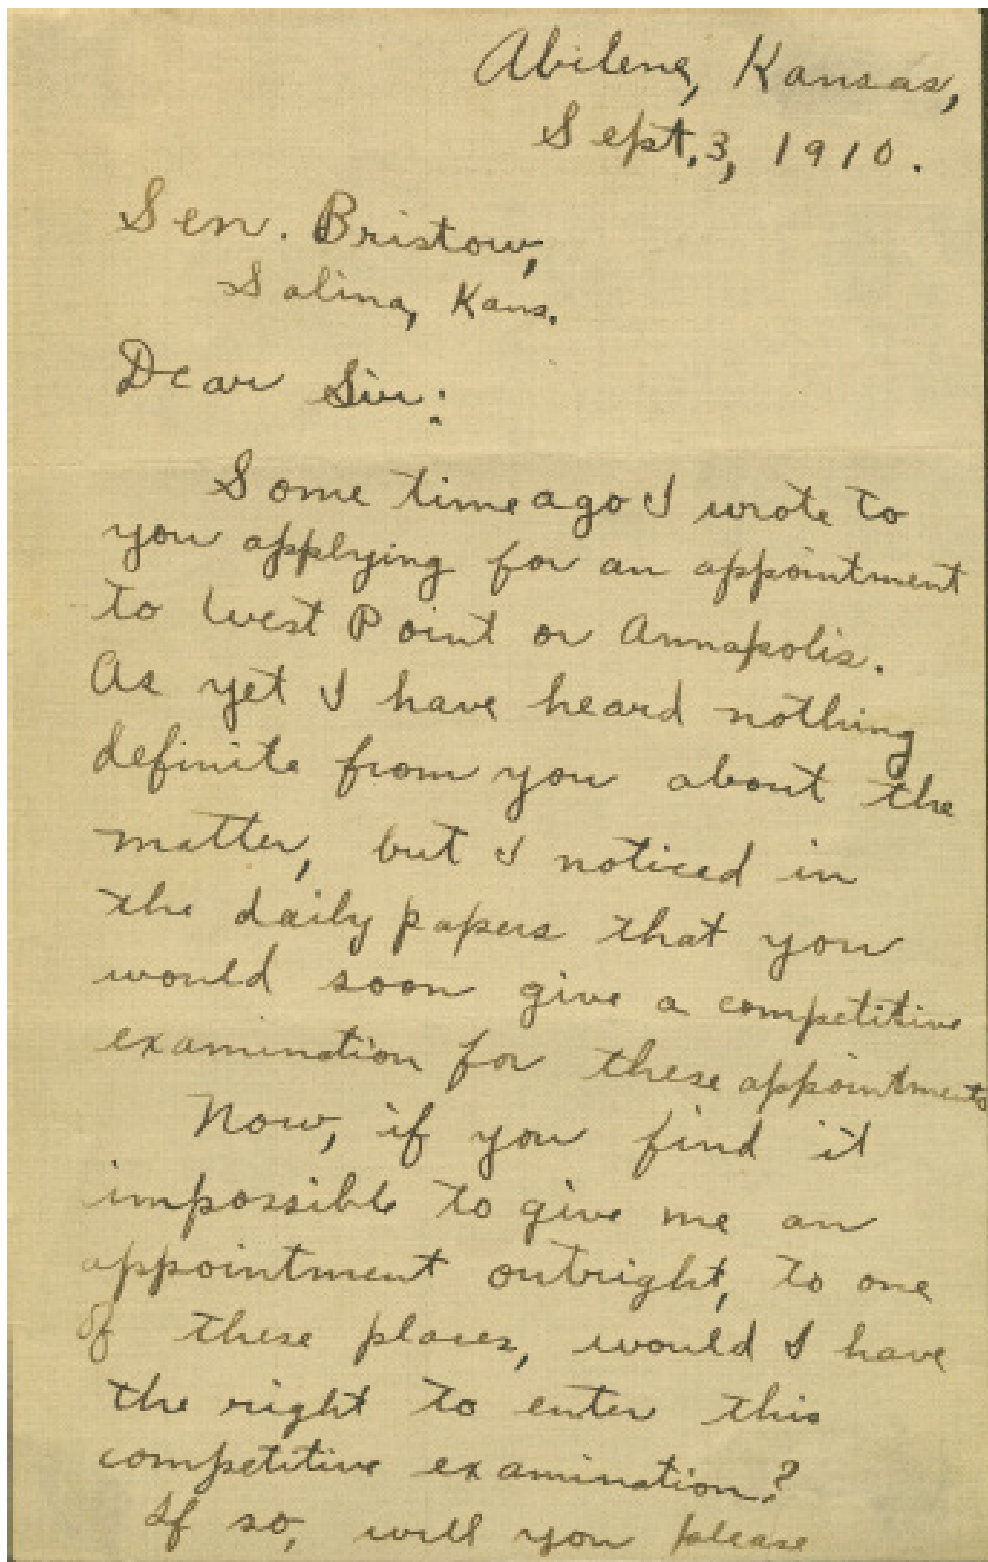 Abilene, Kansas,
Sept. 3, 1910.
Sen. Bristow,
Salina, Kans.
Dear Sir:
Some time ago I wrote to
you applying for an appointment
to West Point or Annapolis.
As yet I have heard nothing
definite from you about the
matter, but I noticed in
the daily papers that you
would soon give a competitive
examination for these appointments
Now, if you find it
impossible to give me an
appointment outright, to one
of these places, would I have
the right to enter this
competitive examination?
If so, will you please